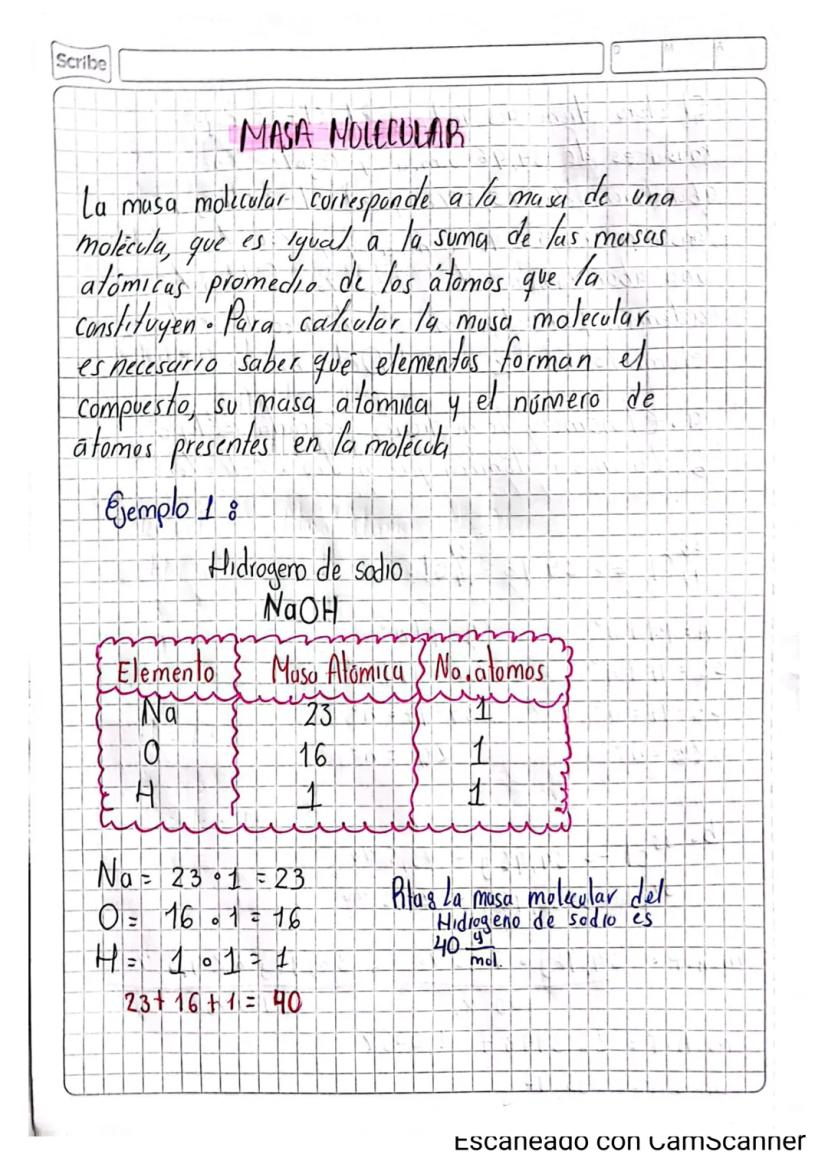 Scribe
D M A
MASA MOLECULAR
La masa molecular corresponde a la masa de una
molécula, que es igual a la suma de las masas
atómicas promedio de los átomos que la
constituyen. Para calcular la masa molecular
es necesario saber qué elementos forman el
compuesto, su masa atómica y el número de
átomos presentes en la molécula
Ejemplo 1:
Hidrogeno de sodio
NaOH
Elemento Masa Atómica No. átomos
Na 23 1
O 16 1
H 1 1
Na = 23 • 1 = 23
O = 16 • 1 = 16
H = 1 • 1 = 1
23 + 16 + 1 = 40
Rta: La masa molecular del
Hidrogeno de sodio es
40 g/mol.
Escaneado con CamScanner